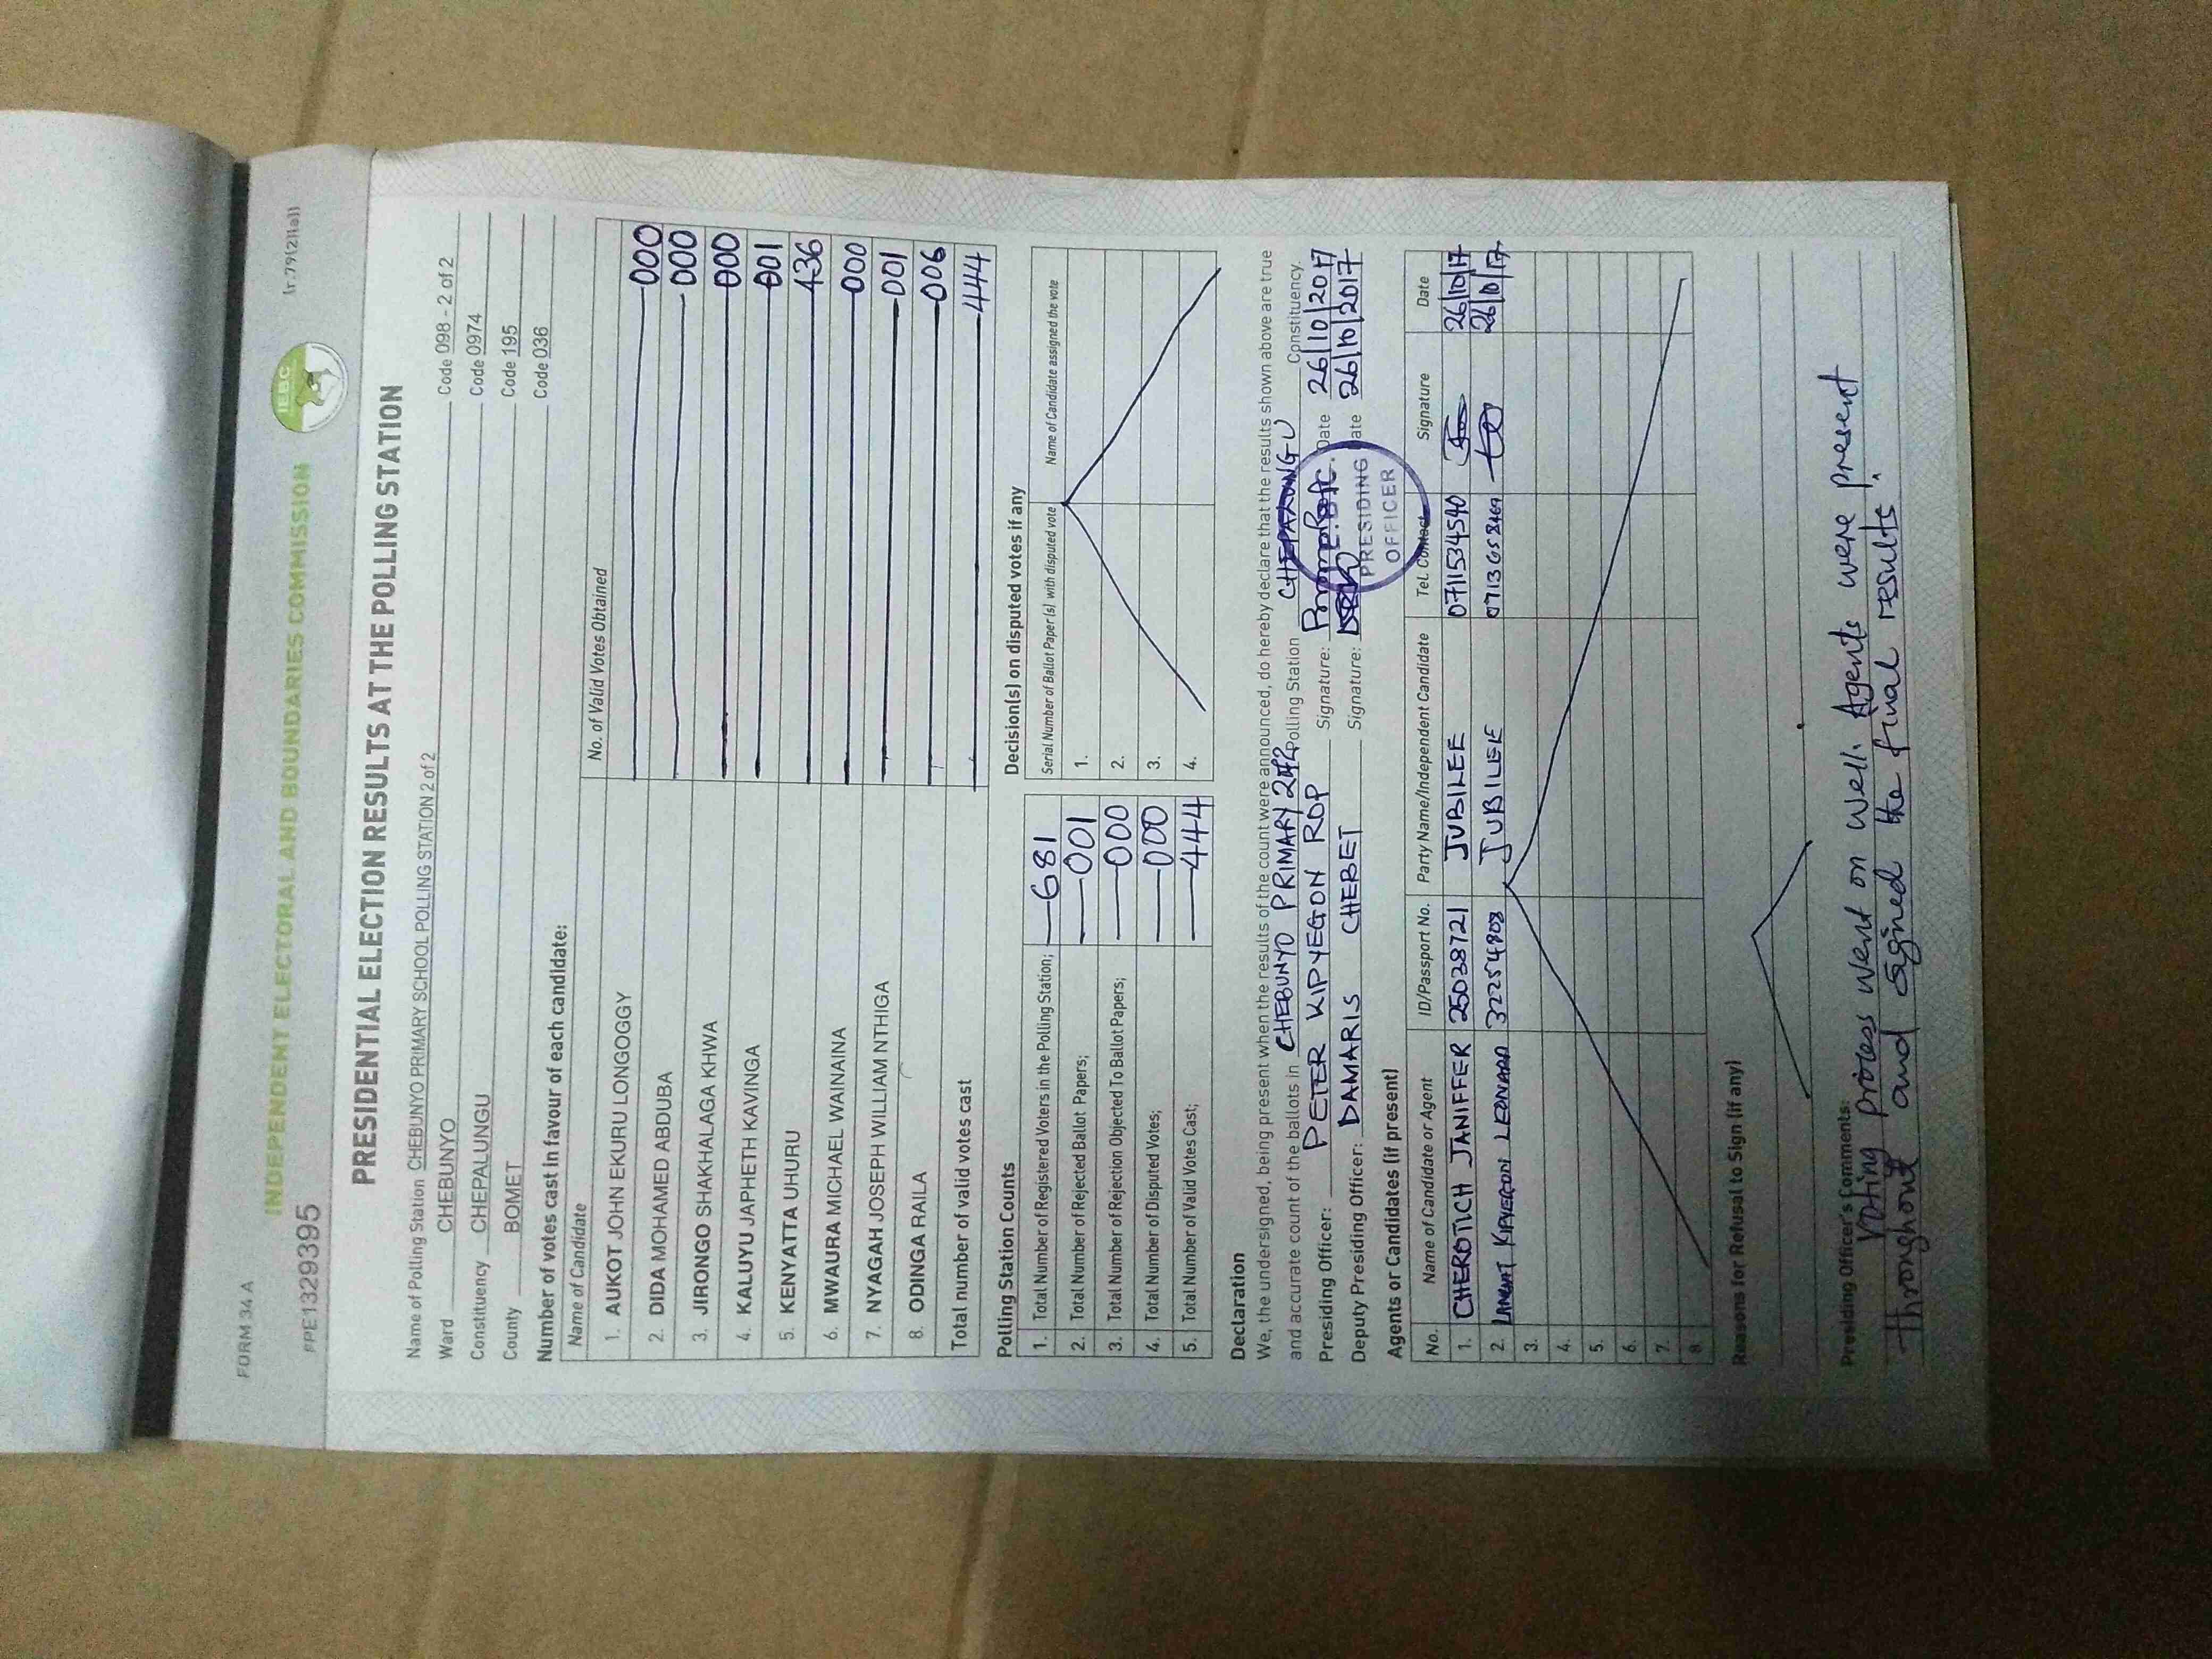 FORM 34 A
(r.79(2)(a))
IEBC
INDEPENDENT ELECTORAL AND BOUNDARIES COMMISSION
PPE1329395
PRESIDENTIAL ELECTION RESULTS AT THE POLLING STATION
Name of Polling Station CHEBUNYO PRIMARY SCHOOL POLLING STATION 2 of 2 Code 098 - 2 of 2
Ward CHEBUNYO Code 0974
Constituency CHEPALUNGU Code 195
County BOMET Code 036
Number of votes cast in favour of each candidate:
Name of Candidate No. of Valid Votes Obtained
1. AUKOT JOHN EKURU LONGOGGY 000
2. DIDA MOHAMED ABDUBA 000
3. JIRONGO SHAKHALAGA KHWA 000
4. KALUYU JAPHETH KAVINGA 001
5. KENYATTA UHURU 436
6. MWAURA MICHAEL WAINAINA 000
7. NYAGAH JOSEPH WILLIAM NTHIGA 001
8. ODINGA RAILA 006
Total number of valid votes cast 444
Polling Station Counts
1. Total Number of Registered Voters in the Polling Station; 681
2. Total Number of Rejected Ballot Papers; 001
3. Total Number of Rejection Objected To Ballot Papers; 000
4. Total Number of Disputed Votes; 000
5. Total Number of Valid Votes Cast; 444
Decision(s) on disputed votes if any
Serial Number of Ballot Paper (s) with disputed vote Name of Candidate assigned the vote
1.
2.
3.
4.
Declaration
We, the undersigned, being present when the results of the count were announced, do hereby declare that the results shown above are true
and accurate count of the ballots in CHEBUNYO PRIMARY 2 of 2 Polling Station CHEPALUNGU Constituency.
Presiding Officer: PETER KIPYEGON ROP Signature: Date 26/10/2017
Deputy Presiding Officer: DAMARIS CHEBET Signature: Date 26/10/2017
PRESIDING
OFFICER
Agents or Candidates (if present)
No. Name of Candidate or Agent ID/Passport No. Party Name/Independent Candidate Tel. Contact Signature Date
1. CHEROTICH JANIFFER 25038721 JUBILEE 0711534540 26/10/17
2. KIPYEGON LEONARD 32254808 JUBILEE 26/10/17
3.
4.
5.
6.
7.
8.
Reasons for Refusal to Sign (if any)
Presiding Officer's Comments:
Voting process went on well. Agents were present
throughout and signed the final results.